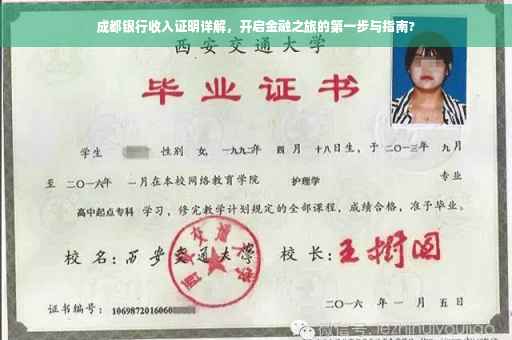 成都银行收入证明详解，开启金融之旅的第一步与指南?
西安交通大学
毕业证书
学生 性别 女，一九九二年 四月 十八日生，于二〇一三年 九月
至 二〇一六年 一月在本校网络教育学院 护理学 专业
高中起点专科 学习，修完教学计划规定的全部课程，成绩合格，准予毕业。
校 名：西安交通大学 校 长：王树国
西安交通大学
证书编号：1069872016060
二〇一六 年 一 月 五 日
微信号: jezhihuiyoujiao